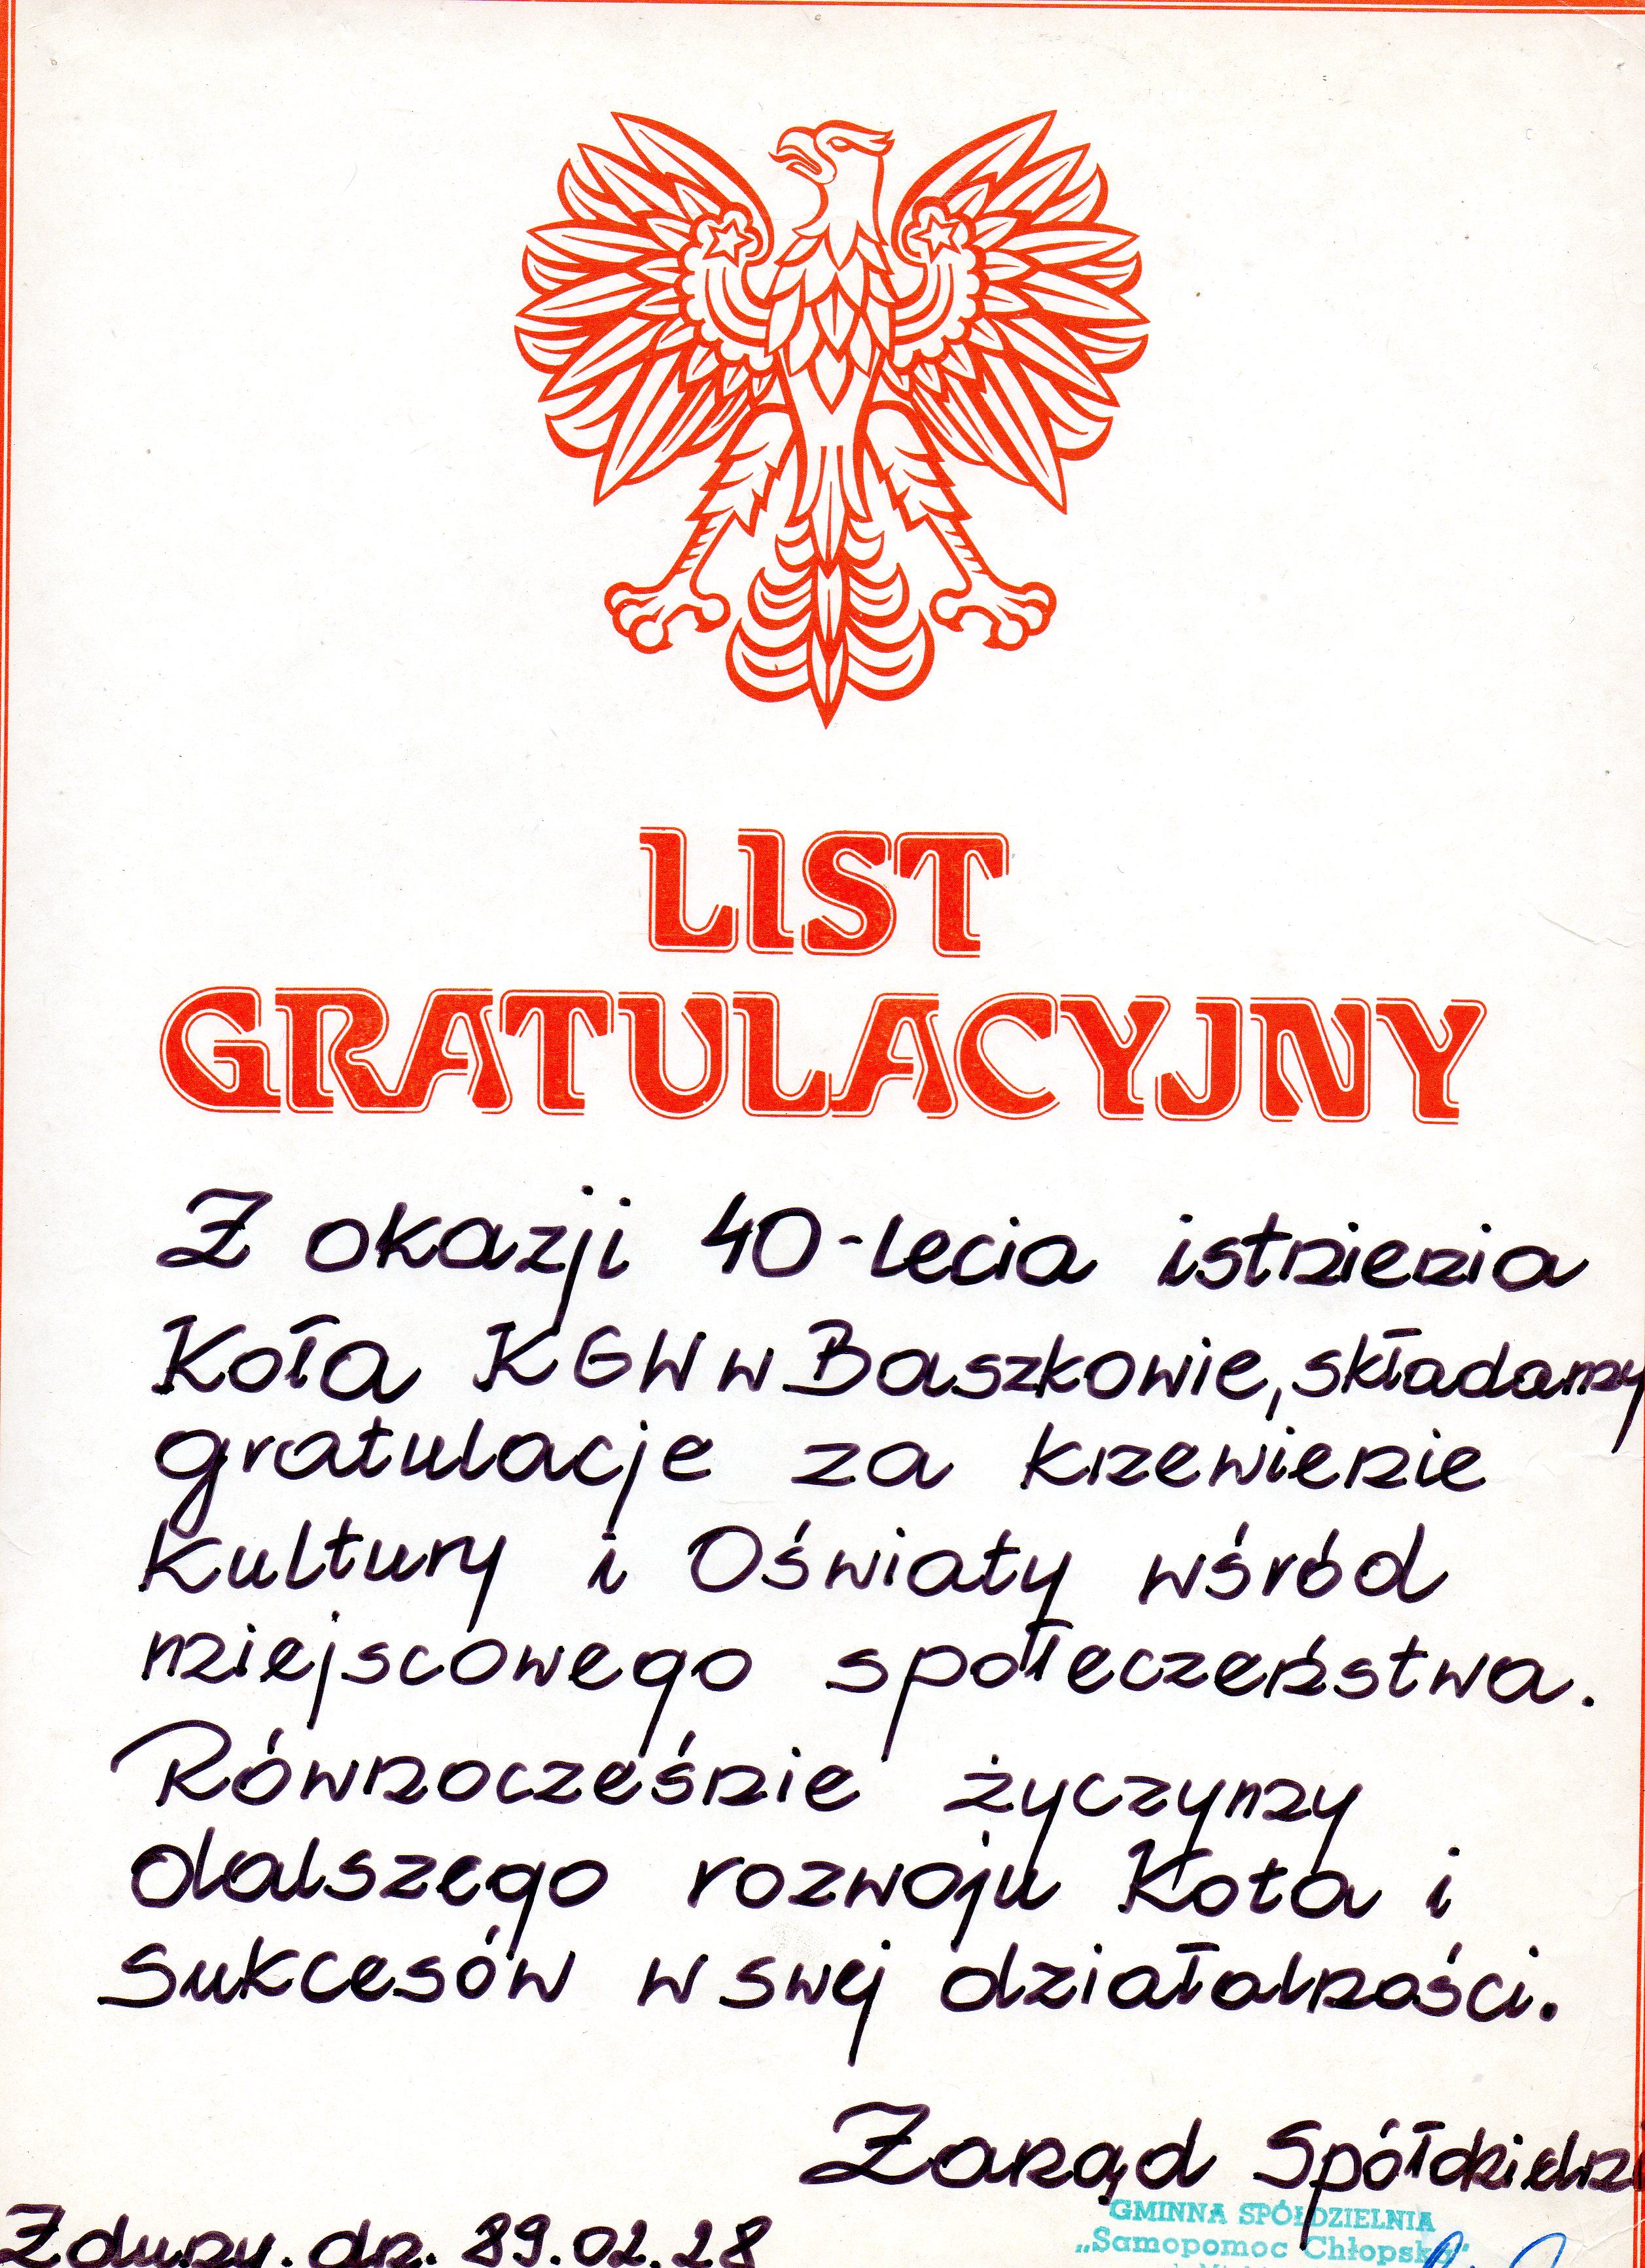 LIST
GRATULACYJNY
Z okazji 40-lecia istnienia
Koła KGW w Baszkowie, składamy
gratulacje za krzewienie
kultury i Oświaty wśród
miejscowego społeczeństwa.
Równocześnie życzymy
dalszego rozwoju Koła i
sukcesów w swej działalności.
Zarząd Spółdzielni
GMINNA SPÓŁDZIELNIA
„Samopomoc Chłopska"
Zduny. dn. 89.02.28